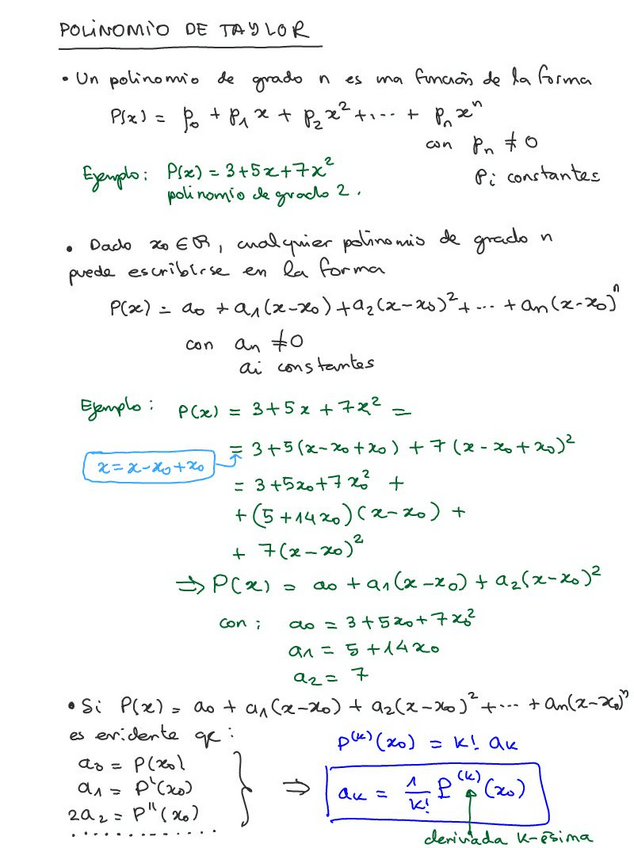 POLINOMIO DE TAYLOR
• Un polinomio de grado n es una función de la forma
P(x) = p₀ + p₁x + p₂x² + ... + pₙxⁿ
con pₙ ≠ 0
Pi constantes
Ejemplo: P(x) = 3+5x+7x²
polinomio de grado 2.
• Dado x₀ ∈ ℝ, cualquier polinomio de grado n
puede escribirse en la forma
P(x) = a₀ + a₁(x-x₀) + a₂(x-x₀)² + ... + aₙ(x-x₀)ⁿ
con aₙ ≠ 0
ai constantes
Ejemplo: P(x) = 3+5x+7x² =
x = x-x₀+x₀ = 3+5(x-x₀+x₀) + 7(x-x₀+x₀)²
= 3+5x₀+7x₀² +
+(5+14x₀)(x-x₀) +
+ 7(x-x₀)²
⇒ P(x) = a₀ + a₁(x-x₀) + a₂(x-x₀)²
con: a₀ = 3+5x₀+7x₀²
a₁ = 5+14x₀
a₂ = 7
• Si P(x) = a₀ + a₁(x-x₀) + a₂(x-x₀)² + ... + aₙ(x-x₀)ⁿ
es evidente qe:
a₀ = P(x₀)
a₁ = P'(x₀)
2a₂ = P''(x₀)
............
} ⇒
P⁽ᵏ⁾(x₀) = k! aₖ
aₖ = 1/k! P⁽ᵏ⁾(x₀)
derivada k-ésima